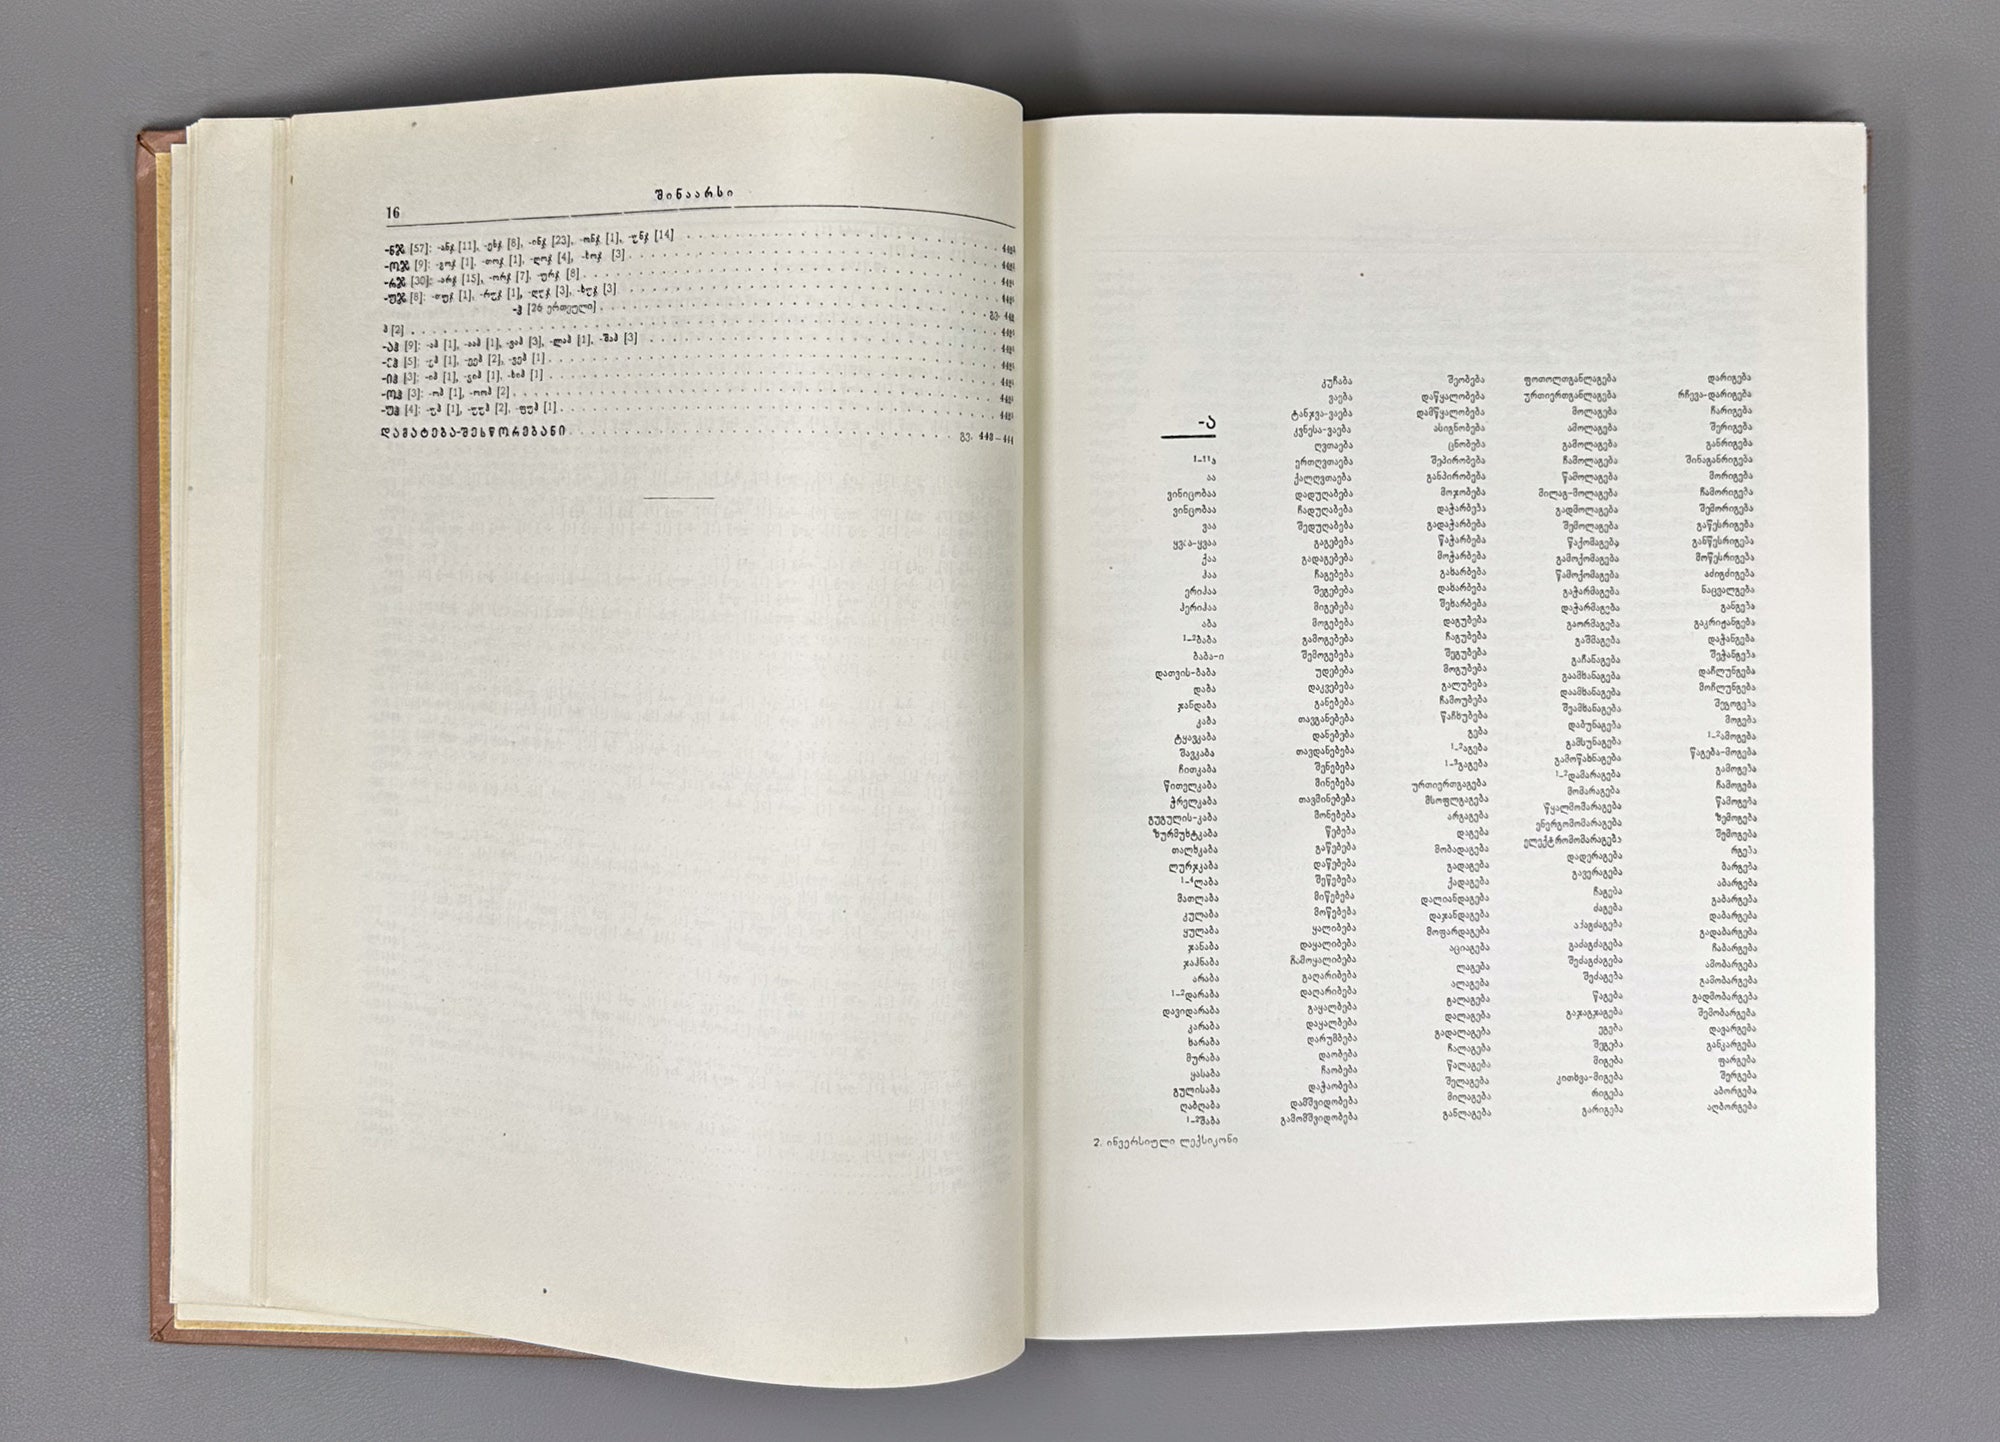 16
შინაარსი
-ნჯ [57]: -ანჯ [11], -ენჯ [8], -ინჯ [23], -ონჯ [1], -უნჯ [14]
-ოჯ [9]: -გოჯ [1], -თოჯ [1], -ღოჯ [4], -ხოჯ [3]
-რჯ [30]: -არჯ [15], -ორჯ [7], -ურჯ [8]
-უჯ [8]: -თუჯ [1], -რუჯ [1], -ღუჯ [3], -ხუჯ [3]
-ჰ [26 ერთეული]
ჰ [2]
-აჰ [9]: -აჰ [1], -ააჰ [1], -ვაჰ [3], -ლაჰ [1], -შაჰ [3]
-ეჰ [5]: -ეჰ [1], -ეეჰ [2], -ვეჰ [1]
-იჰ [3]: -იჰ [1], -ვიჰ [1], -ხიჰ [1]
-ოჰ [3]: -ოჰ [1], -ოოჰ [2]
-უჰ [4]: -უჰ [1], -უუჰ [2], -ფუჰ [1]
დამატება-შესწორებანი გვ. 443–444
-ა
1–11ა
აა
ვინიცობაა
ვინცობაა
ვაა
ყვაა-ყვაა
ქაა
ჰაა
ერიჰაა
ჰერიჰაა
აბა
1–2ბაბა
ბაბა-ი
დათვის-ბაბა
დაბა
ჯანდაბა
კაბა
ტყავკაბა
შავკაბა
ჩითკაბა
წითელკაბა
ჭრელკაბა
გუგულის-კაბა
ზურმუხტკაბა
თალხკაბა
ლურჯკაბა
1–4ლაბა
მათლაბა
კულაბა
ყულაბა
ჯანაბა
ჯაჰნაბა
არაბა
1–2დარაბა
დავიდარაბა
კარაბა
ხარაბა
მურაბა
ყასაბა
გულისაბა
ღაბღაბა
1–2შაბა
კუჩაბა
ვაება
ტანჯვა-ვაება
კვნესა-ვაება
ღვთაება
ერთღვთაება
ქალღვთაება
დადუღაბება
ჩადუღაბება
შედუღაბება
გაგებება
გადაგებება
ჩაგებება
შეგებება
მიგებება
მოგებება
გამოგებება
შემოგებება
უდებება
დაკვებება
განებება
თავგანებება
დანებება
თავდანებება
შენებება
მინებება
თავმინებება
მონებება
წებება
გაწებება
დაწებება
შეწებება
მიწებება
მოწებება
ყალიბება
დაყალიბება
ჩამოყალიბება
გაღარიბება
დაღარიბება
გაყალბება
დაყალბება
დარუმბება
დაობება
ჩაობება
დაჭაობება
დამშვიდობება
გამომშვიდობება
შეობება
დაწყალობება
დამწყალობება
ასიგნობება
ცნობება
შეპირობება
განპირობება
მოჯობება
დაჭარბება
გადაჭარბება
წაჭარბება
მოჭარბება
გახარბება
დახარბება
შეხარბება
დაგუბება
ჩაგუბება
შეგუბება
მოგუბება
გალუბება
ჩამოუბება
წაჩხუბება
გება
1–2აგება
1–3გაგება
ურთიერთგაგება
მსოფლგაგება
არგაგება
დაგება
მობადაგება
გადაგება
ქადაგება
დალიანდაგება
დაჯანდაგება
მოფარდაგება
აციაგება
ლაგება
ალაგება
გალაგება
დალაგება
გადალაგება
ჩალაგება
წალაგება
შელაგება
მილაგება
განლაგება
ფოთოლთგანლაგება
ურთიერთგანლაგება
მოლაგება
ამოლაგება
გამოლაგება
ჩამოლაგება
წამოლაგება
მილაგ-მოლაგება
გადმოლაგება
შემოლაგება
წაქომაგება
გამოქომაგება
წამოქომაგება
გაჭარმაგება
დაჭარმაგება
გაორმაგება
გაშმაგება
გაჩანაგება
გაამხანაგება
დაამხანაგება
შეამხანაგება
დაბუნაგება
გამსუნაგება
გამოწახნაგება
1–2დამარაგება
მომარაგება
წყალმომარაგება
ენერგომომარაგება
ელექტრომომარაგება
დადერაგება
გავერაგება
ჩაგება
ძაგება
აძაგძაგება
გაძაგძაგება
შეძაგძაგება
შეძაგება
წაგება
გაჯაგჯაგება
ეგება
შეგება
მიგება
კითხვა-მიგება
რიგება
გარიგება
დარიგება
რჩევა-დარიგება
ჩარიგება
შერიგება
განრიგება
შინაგანრიგება
მორიგება
ჩამორიგება
შემორიგება
გაწესრიგება
განწესრიგება
მოწესრიგება
აძიგძიგება
ნაცვალგება
განგება
გაკრიჟანგება
დაჟანგება
შეჟანგება
დაჩლუნგება
მოჩლუნგება
შეგოგება
მოგება
1–2ამოგება
წაგება-მოგება
გამოგება
ჩამოგება
წამოგება
ზემოგება
შემოგება
რგება
ბარგება
აბარგება
გაბარგება
დაბარგება
გადაბარგება
ჩაბარგება
ამობარგება
გამობარგება
გადმობარგება
შემობარგება
დავარგება
განკარგება
ფარგება
შერგება
აბორგება
აღბორგება
2. ინვერსიული ლექსიკონი